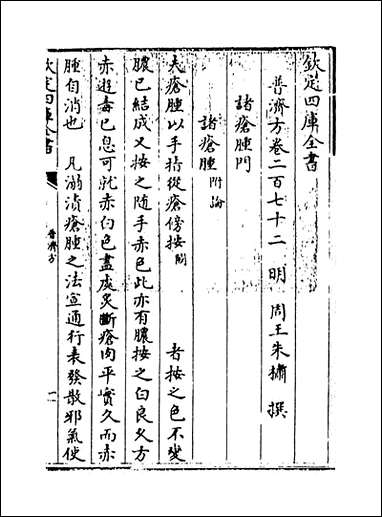 欽定四庫全書
普濟方卷二百七十二 明 周王朱橚 撰
諸瘡腫門
諸瘡腫 附論
夫瘡腫以手指從瘡傍按 闕 者按之色不變
膿已結成又按之隨手赤色此亦有膿按之白良久方
赤遊毒已息可就赤白色盡處灸斷瘡肉平實久而赤
腫自消也 凡溻漬瘡腫之法宣通行表發散邪氣使
欽定四庫全書
普濟方
一